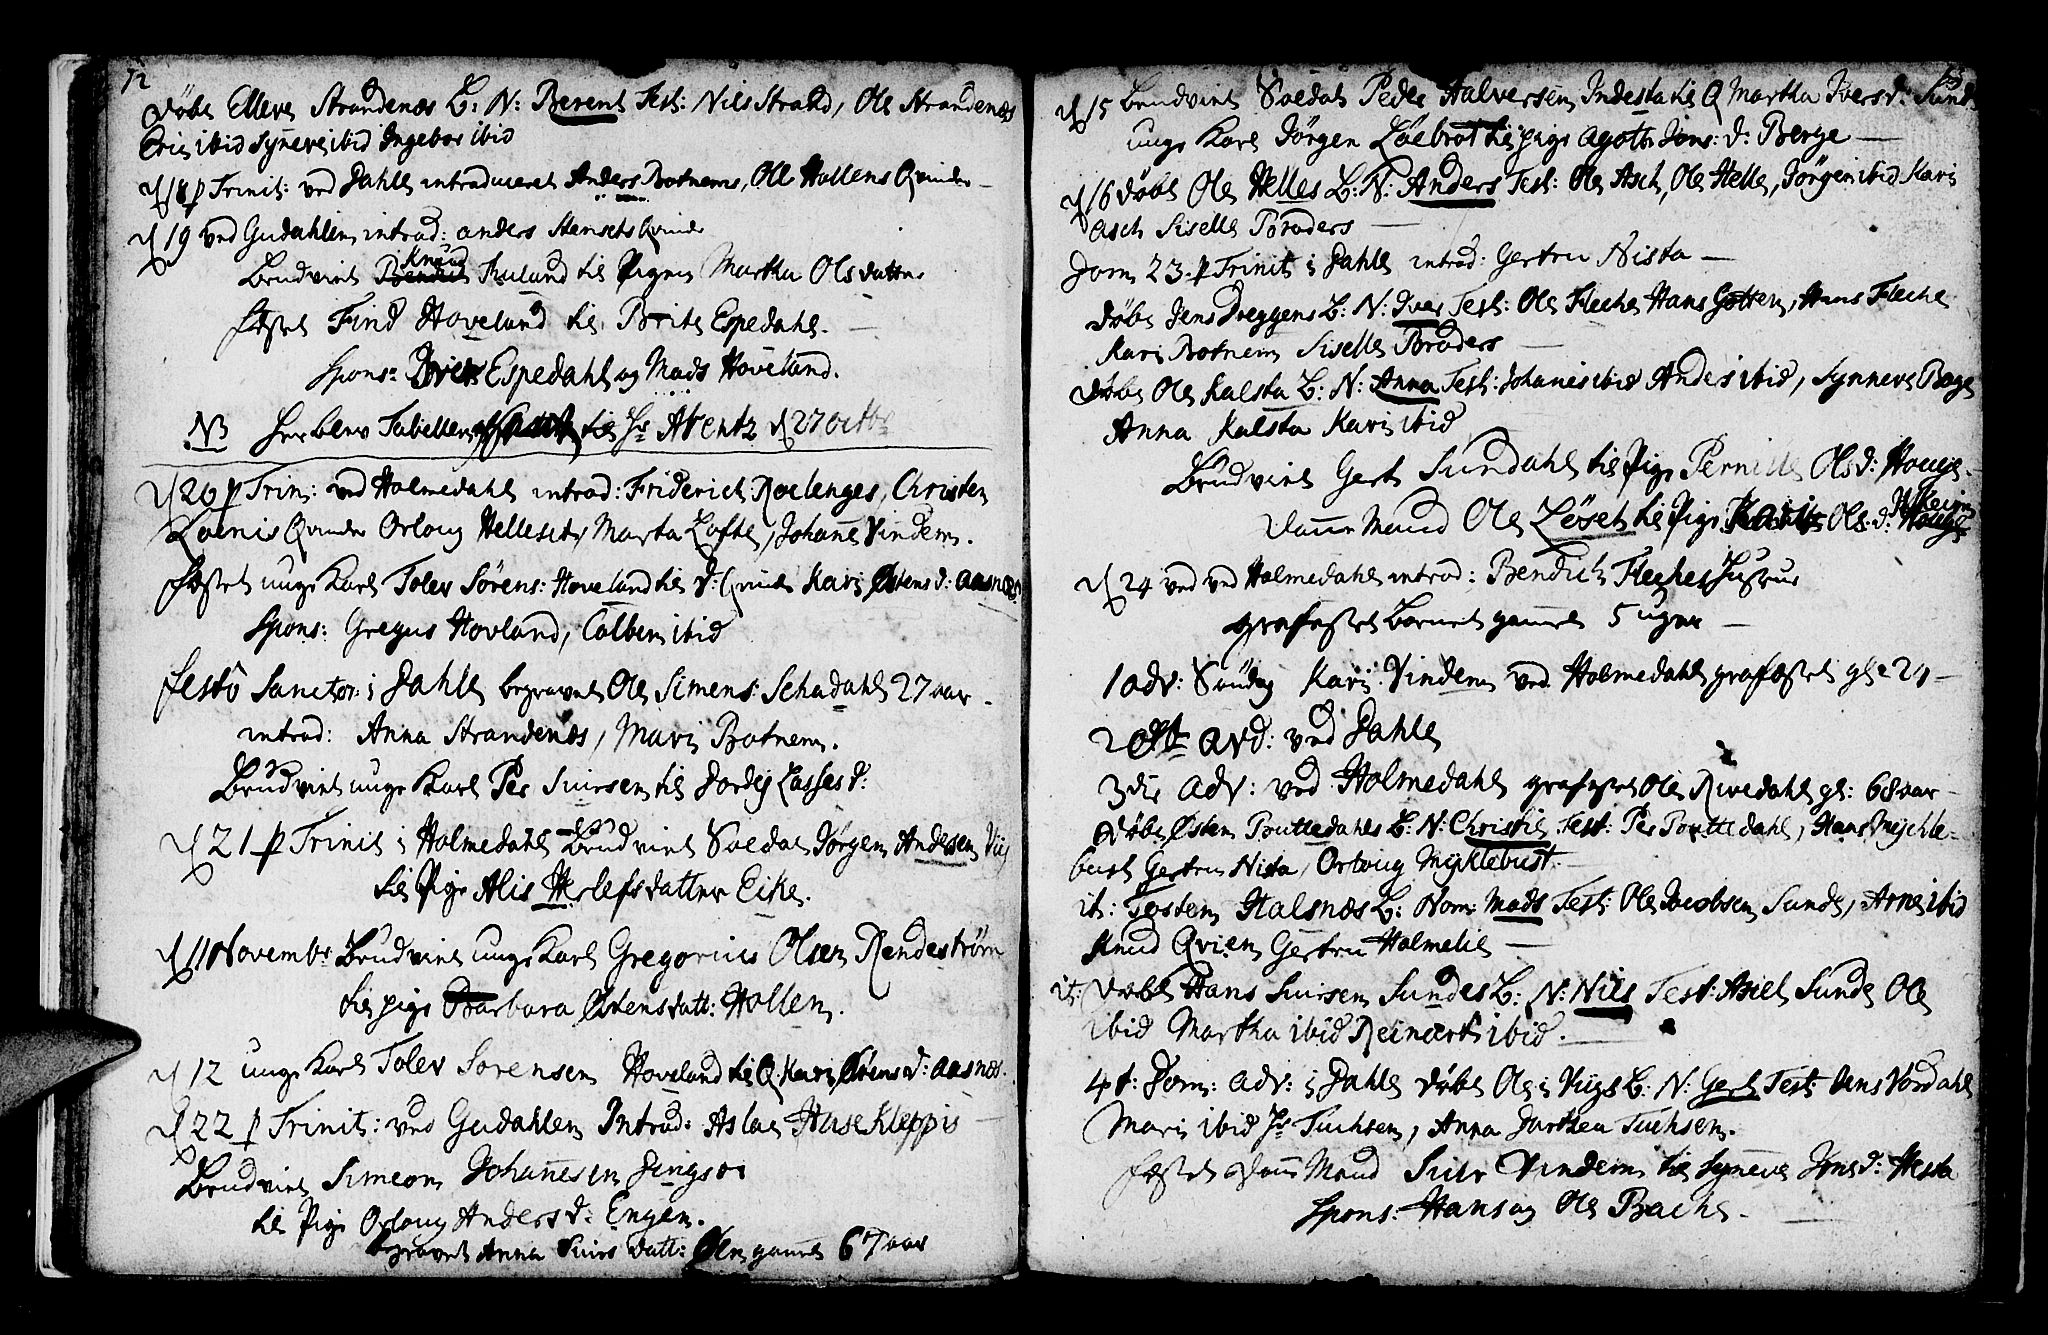 72
døbt Ellevs Strandenæs B: N: Berent Test: Nils Strand, Ole Strandenæs
Eric ibid Synnevs ibid Ingebor ibid
d 18 p Trinit: ved Dahle introduceret Anders Botnems, Ole Hollens Qvinder
d 19 ved Gudahlen introd: anders Stensets Qvinde
Brudviet Knud Ruland til Pigen Martha Ols datter
fæstet Find Hoveland til Brite Espedahl.
Spons: Iver Espedahl og Mads Hoveland.
NB her blev Tabellen til Hr Arentz d 27 octbr
d 20 p Trin: ved Holmedahl introd: Friderich Roelenges, Christen
Qvinder Orloug Hellesit, Marta Lofte, Johane Vindem.
fæstet unge Karl Tolev Sørens: Hoveland til d: Qvinde Kari Østens d: Aasnæs
Spons: Gregus Hovland, Colben ibid
festô Sanctor: i Dahle begravet Ole Simens: Schadahl 27 aar.
introd: Anna Strandenæs, Mari Botnem.
Brudviet unge Karl Per Siursen til Jordig Lasses d:
d 21 p Trinit i Holmedahl Brudviet Soldat Jørgen Andersen Viig
til Pige Alis Herlefsdatter Eike.
d 11 Novembr Brudviet unge Karl Gregorius Olsen Rendestrøm
til pige Barbara Østensdatt: Hollen.
d 12 unge Karl Tolev Sorensen Hoveland til Q: Kari Østens d: Aasnæs.
d 22 p Trinit: ved Gudahlen Introd: Aslac Huse Kleppis
Brudviet Simeon Johannesen Gingsor
til Pige Orloug Anders d: Engen.
begravet Anna Siurs datt: Øen gamel 67 aar
73
d 15 Brudviet Soldat Peder Halversen Indesta til Q Martha Ivers d: Sunde
unge Karl Jørgen Løebrot til pige Agotte Jons: d: Berge
d 16 døbt Ole Helles B: N: Anders Test: Ole Asch, Ole Helle, Jørgen ibid Kari
Asch Siselle Broders
Dom 23 p Trinit i Dahle introd: Gertru Nista
døbt Jens Dreggens B: N: Iver Test: Ole Fleche Hans Gotten, Hans Fleche
Kari Botnem Siselle Broders
døbt Ole Kalsta B: N: Anna Test: Johanes ibid Anders ibid, Synneve Boge
Anna Kalsta Kari ibid
Brudviet Gert Sundahl til Pige Pernille Ols d: Houge.
Danne Mand Ole Løset til Pige Karis Ols: d:
d 24 ved ved Holmedahl introd: Bendich Fleches Hustrue
grafæstet Barnet gamel 5 uger
1 adv: Søndag Kari Vindem ved Holmedahl grafæstet gl: 24
2den Avd: ved Dahle
3die Adv: ved Holmedahl grafæstet Ole Rivedahl gl: 68 aar
døbt Østen Pouttedahls B: N: Christi Test: Per Pouttedahl, Hans Mychle-
bust Gertru Nista, Orloug Myklebust.
it: Tosten Halsnæs B: Nom: Mads Test: Ole Jacobsen Sunde, Arne ibid
Knud Qvien Gertru Holmelie
it: døbt Hans Siursen Sundes B: N: Nils Test: Axel Sunde Ole
ibid Martha ibid Reinert ibid.
4t: Dom: adv: i Dahle døbt Ole i Viigs B: N: Gert Test: Jens Vordahl
Mari ibid Hr Tuchsen, Anna Dorthea Tuchsen.
fæstet Danne Mand Siur Vindem til Synneve Jons d: Hesta
Spons: Hans og Ole Bache.